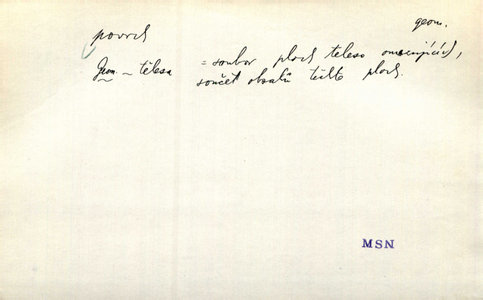 geom.
povrch
Geom. ~ tělesa = soubor ploch těleso omezujících,
součet obsahů těchto ploch.
MSN